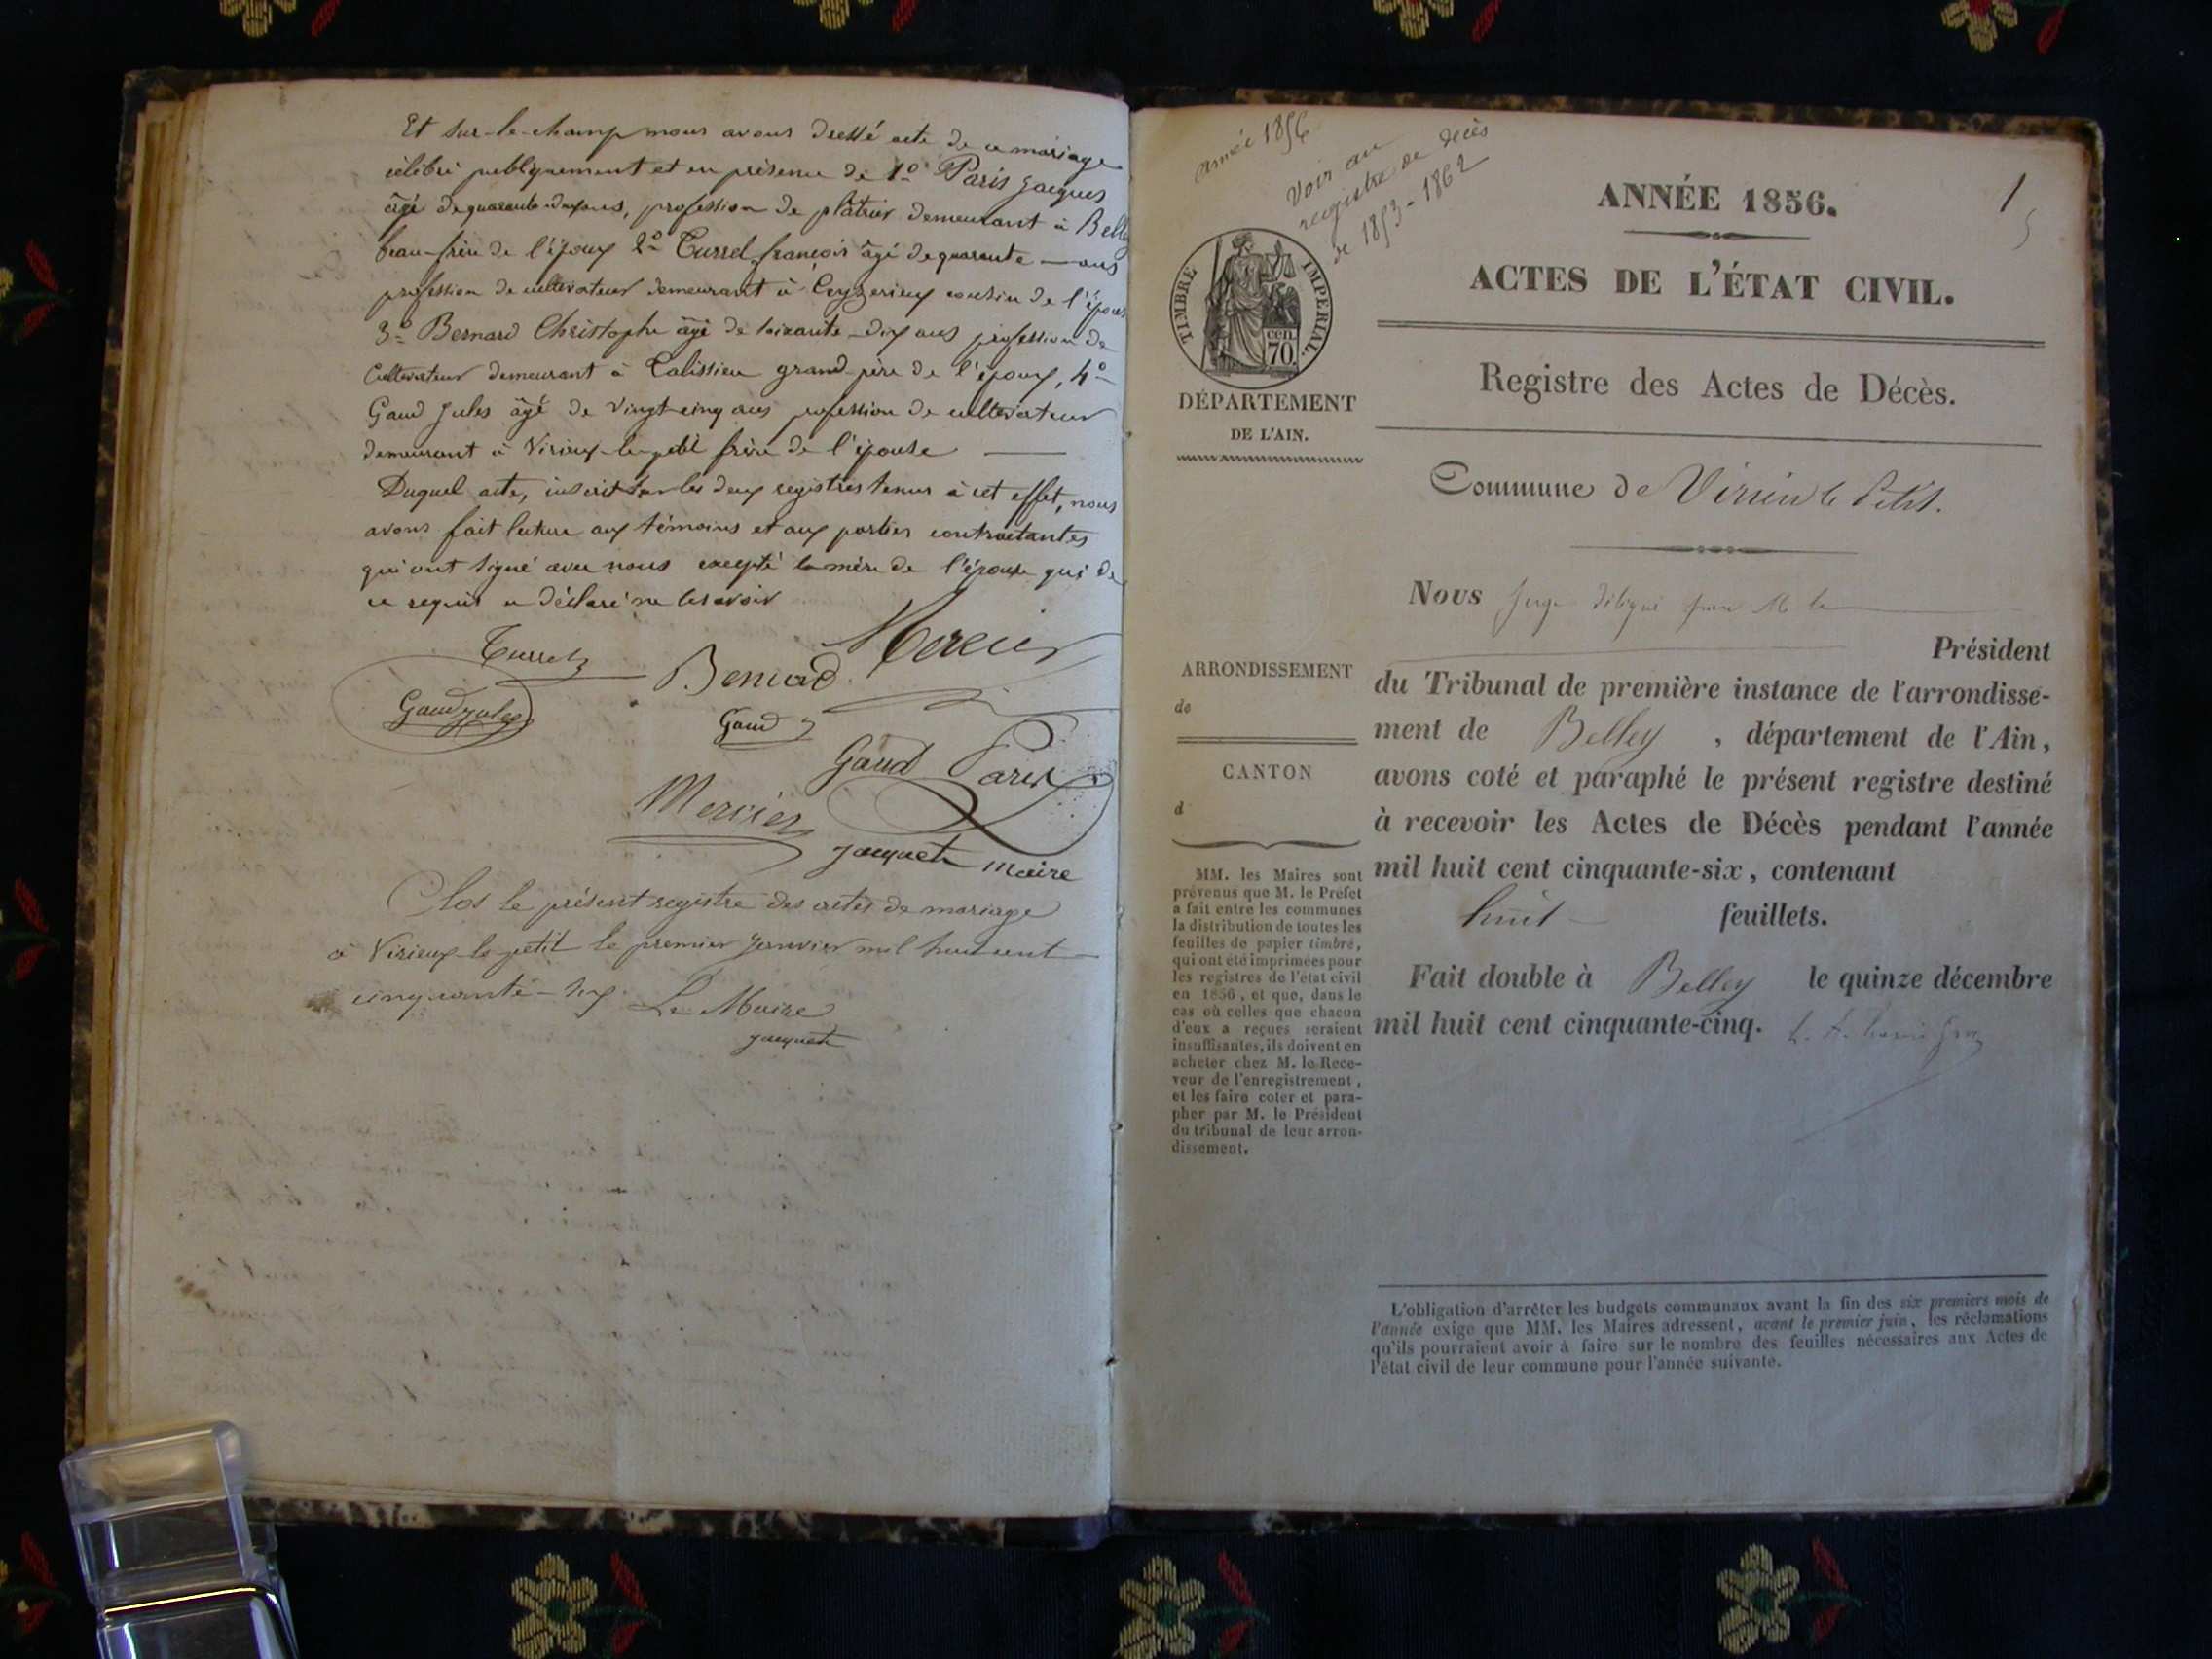 Et sur-le-champ nous avons dressé acte de ce mariage
célébré publiquement et en présence de 1o Paris Jacques
âgé de quarante-deux ans, profession de plâtrier demeurant à Belley
beau-frère de l'époux 2o Turrel françois âgé de quarante — ans
profession de cultivateur demeurant à Ceyzerieux cousin de l'époux
3o Bernard Christophe âgé de soixante-dix ans profession de
cultivateur demeurant à Talissieu grand-père de l'époux, 4o
Gaud Jules âgé de vingt-cinq ans profession de cultivateur
demeurant à Virieux-le-petit frère de l'épouse —
Duquel acte, inscrit sur les deux registres tenus à cet effet, nous
avons fait lecture aux témoins et aux parties contractantes
qui ont signé avec nous excepté la mère de l'épouse qui de
ce requis a déclaré ne le savoir
Turrel
Bernard
Mercier
Gaud jules
Gaud
Gaud
Paris
Mercier
Jacquet maire
Clos le présent registre des actes de mariage
à Virieux-le-petit le premier Janvier mil huit cent
cinquante-six. Le Maire
Jacquet
année 1856
Voir au
registre de décès
de 1853-1862
1
TIMBRE IMPERIAL.
cen.
70
DÉPARTEMENT
DE L'AIN.
ARRONDISSEMENT
de
CANTON
d
MM. les Maires sont
prévenus que M. le Préfet
a fait entre les communes
la distribution de toutes les
feuilles de papier timbré,
qui ont été imprimées pour
les registres de l'état civil
en 1856, et que, dans le
cas où celles que chacun
d'eux a reçues seraient
insuffisantes, ils doivent en
acheter chez M. le Rece-
veur de l'enregistrement,
et les faire coter et para-
pher par M. le Président
du tribunal de leur arron-
dissement.
ANNÉE 1856.
ACTES DE L'ÉTAT CIVIL.
Registre des Actes de Décès.
Commune de Virieu le Petit.
Nous Juge délégué par M le
Président
du Tribunal de première instance de l'arrondisse-
ment de Belley, département de l'Ain,
avons coté et paraphé le présent registre destiné
à recevoir les Actes de Décès pendant l'année
mil huit cent cinquante-six, contenant
huit — feuillets.
Fait double à Belley le quinze décembre
mil huit cent cinquante-cinq.
L'obligation d'arrêter les budgets communaux avant la fin des six premiers mois de
l'année exige que MM. les Maires adressent, avant le premier juin, les réclamations
qu'ils pourraient avoir à faire sur le nombre des feuilles nécessaires aux Actes de
l'état civil de leur commune pour l'année suivante.